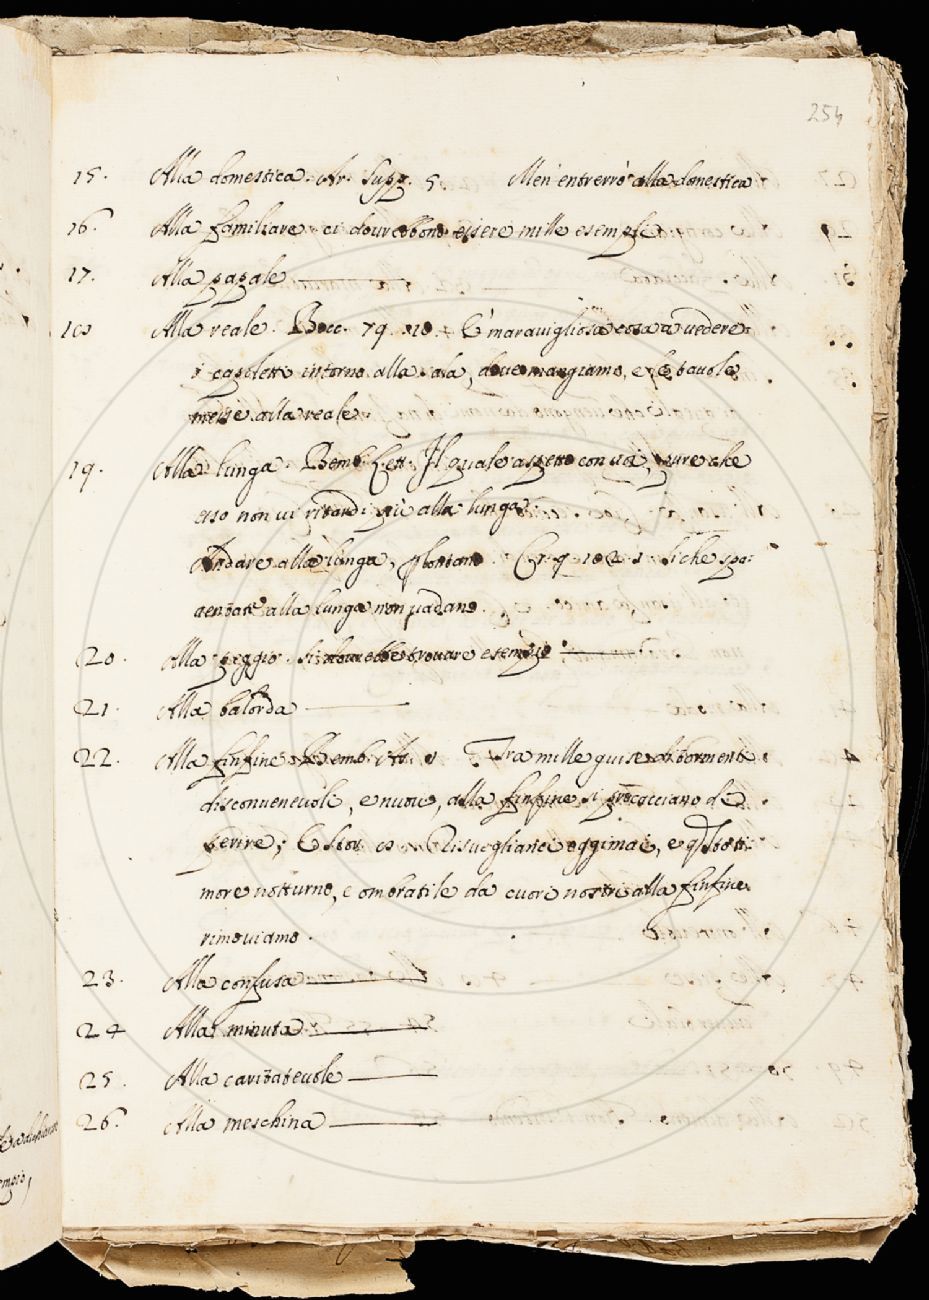 254
15. Alla domestica. Ar. Supp. 5. Men'entrerrò alla domestica
16. Alla familiare ci dourebbono essere mille esempli.
17. Alla papale
18 Alla reale. Bocc. 79. 10. E' maravigliosa cosa a vedere
i capoletti intorno alla sala, dove mangiamo, e le tavole
messe alla reale.
19. Alla lunga. Bemb. Lett. Il quale aspetto con voi, pure che
esso non vi ritardi più alla lunga.
Andare alla lunga, lontano. Cr. 9. 102. 1. si che spa-
ventate alla lunga non vadano.
20. Alla peggio. si dourebbe trovare esempio
21. Alla balorda
22. Alla finfine Bemb. As. Tra mille guise di tormenti
disconvenevole, e nuovo, alla finfine si procacciano de
perire; Risvegliànci oggimai, e q
more notturno, e ombratile da cuori nostri alla finfine
rimoviamo.
23. Alla confusa
24 Alla minuta
25. Alla caritatevole
26. Alla meschina